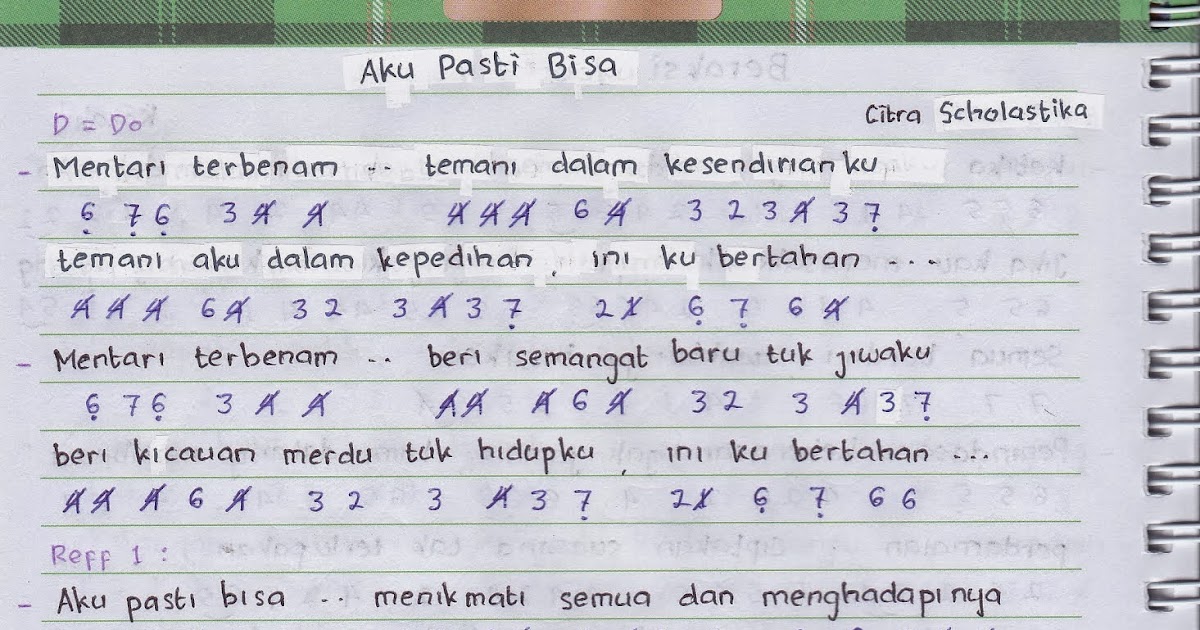 Aku Pasti Bisa
D = Do
Citra Scholastika
- Mentari terbenam ... temani dalam kesendirianku
6̣ 7̣ 6̣ 3 4̸ 4̸ 4̸ 4̸ 4̸ 6 4̸ 3 2 3 4̸ 3 7̣
temani aku dalam kepedihan, ini ku bertahan ....
4̸ 4̸ 4̸ 6 4̸ 3 2 3 4̸ 3 7̣ 2 1̸ 6̣ 7̣ 6 4̸
- Mentari terbenam .. beri semangat baru tuk jiwaku
6̣ 7 6̣ 3 4̸ 4̸ 4̸ 4̸ 4̸ 6 4̸ 3 2 3 4̸ 3 7̣
beri kicauan merdu tuk hidupku, ini ku bertahan ...
4̸ 4̸ 4̸ 6 4̸ 3 2 3 4̸ 3 7̣ 2 1̸ 6̣ 7̣ 6 6
Reff 1 :
- Aku pasti bisa ... menikmati semua dan menghadapinya